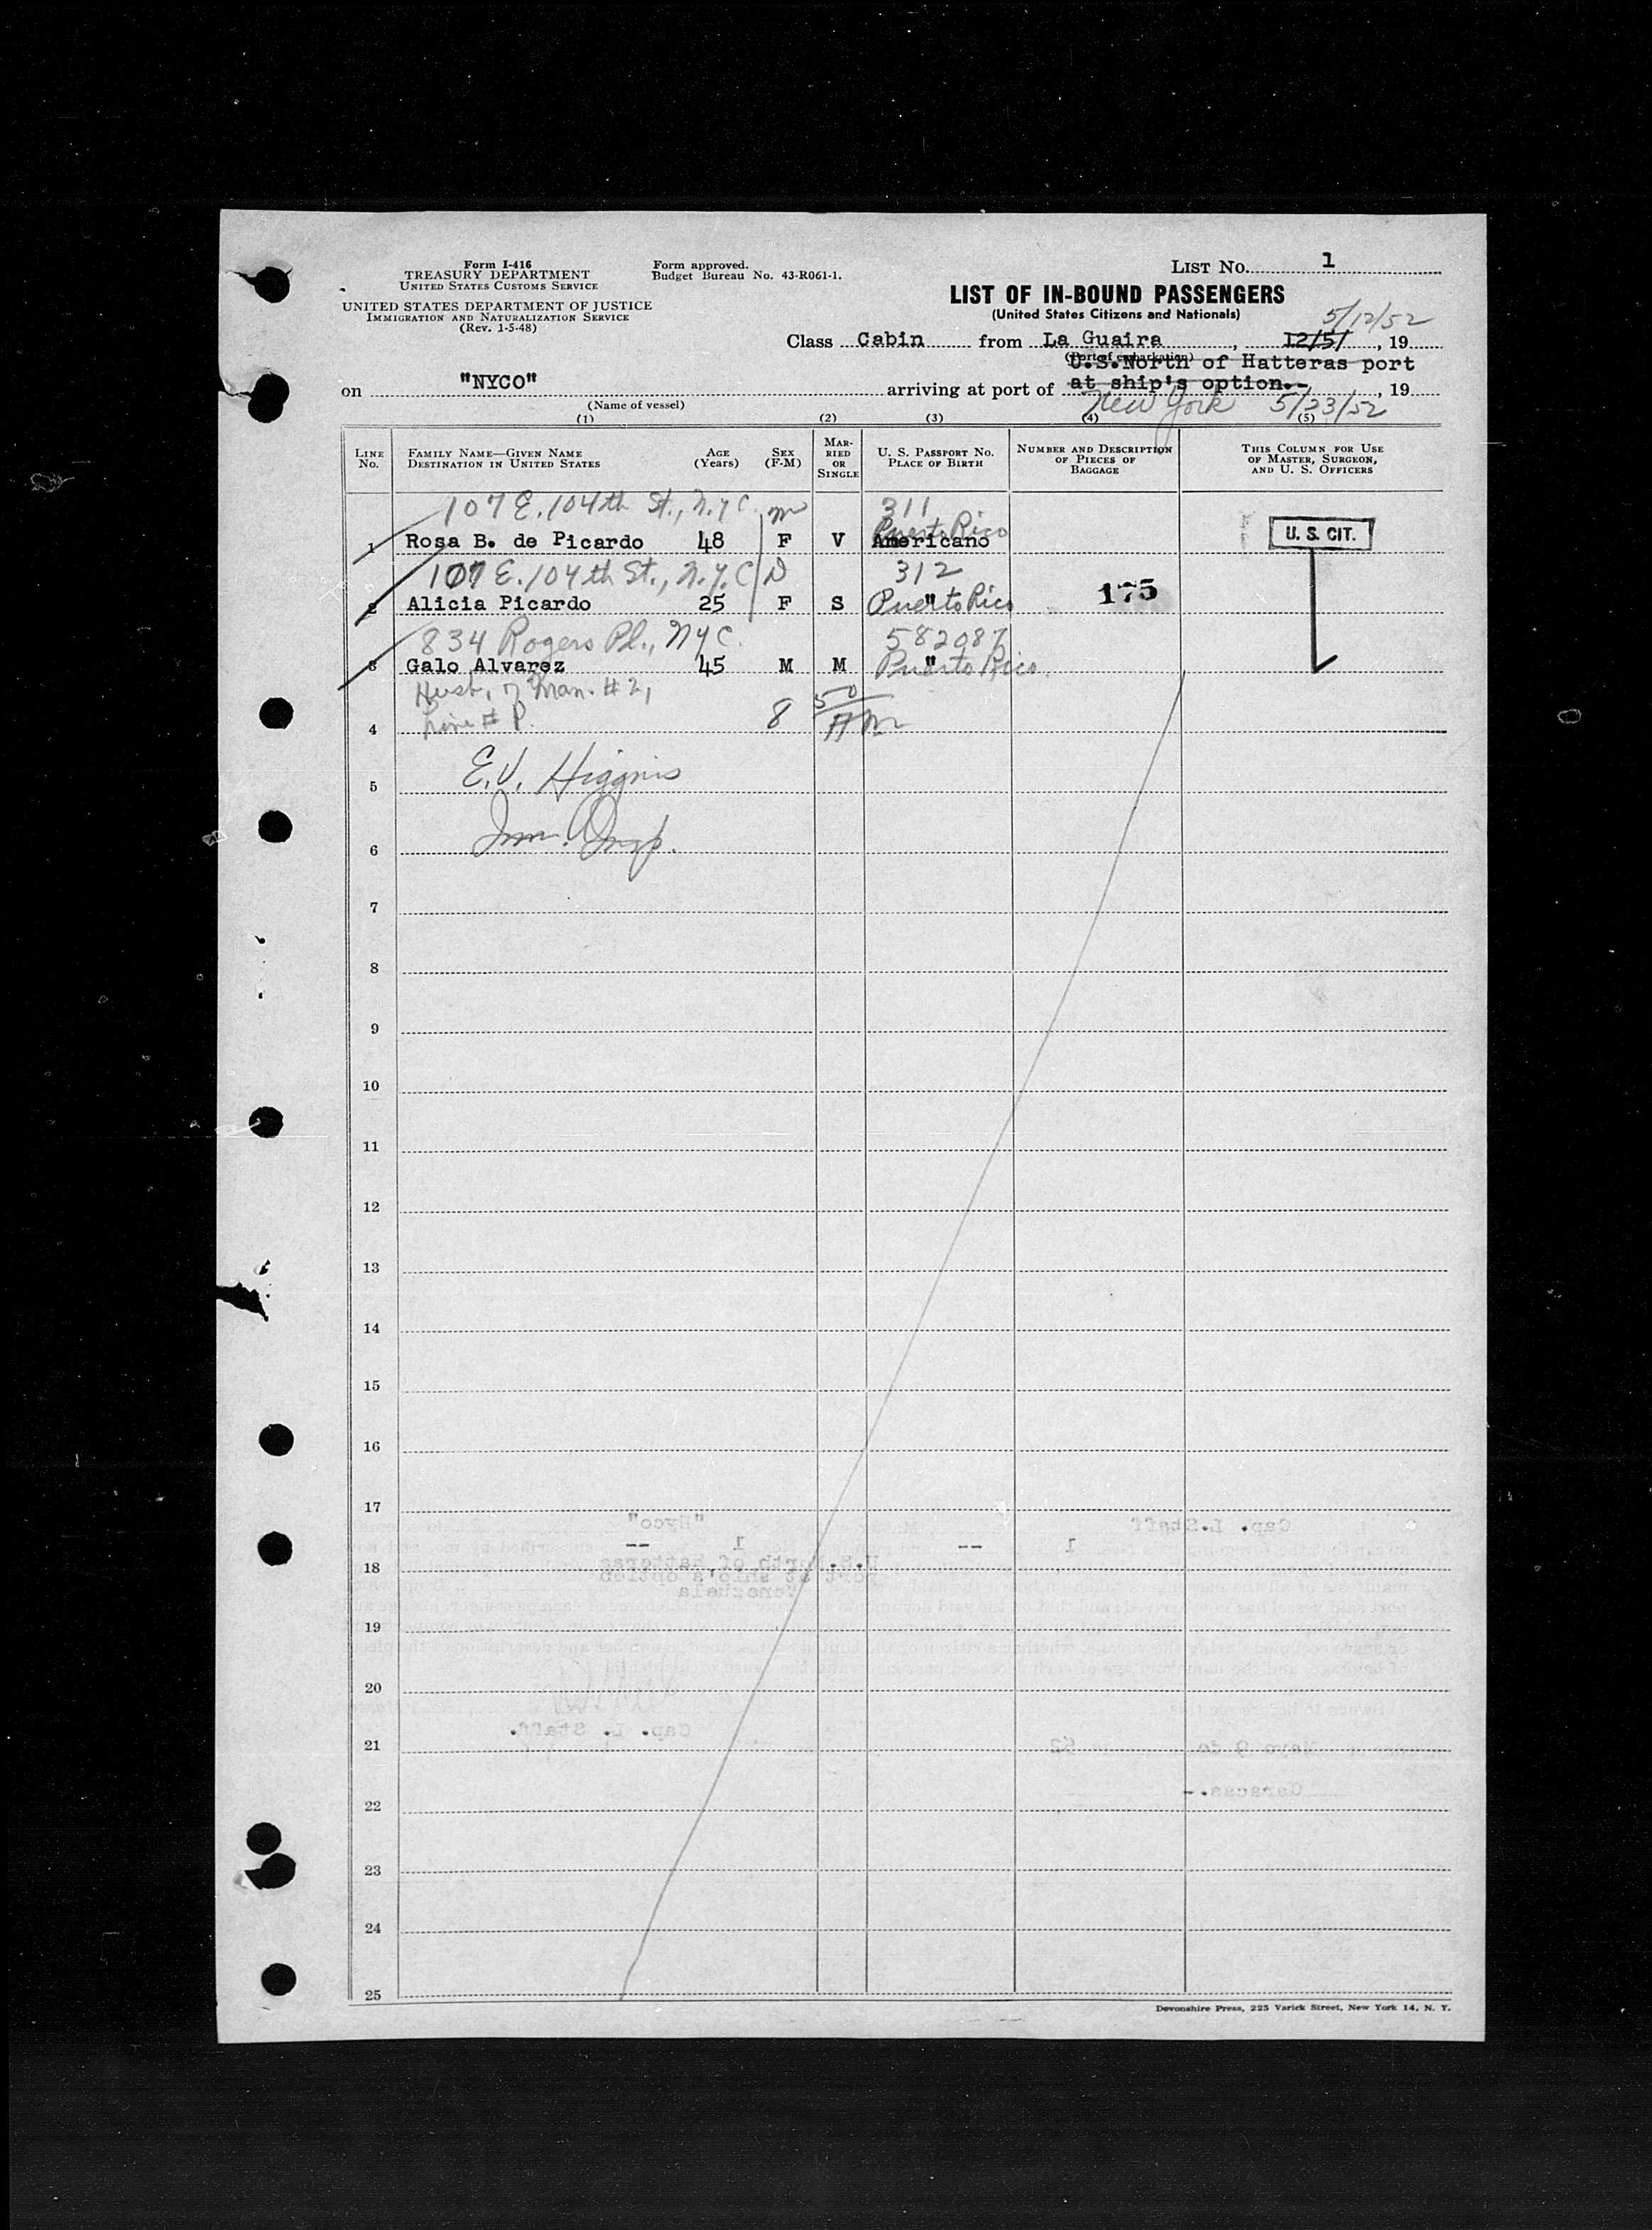 Form I-416
TREASURY DEPARTMENT
UNITED STATES CUSTOMS SERVICE
UNITED STATES DEPARTMENT OF JUSTICE
IMMIGRATION AND NATURALIZATION SERVICE
(Rev. 1-5-48)
Form approved.
Budget Bureau No. 43-R061-1.
LIST No. 1
LIST OF IN-BOUND PASSENGERS
(United States Citizens and Nationals)
5/12/52
Class Cabin from La Guaira, 12/5/, 19
(Port of embarkation)
U.S.North of Hatteras port
on "NYCO" arriving at port of at ship's option.-, 19
(Name of vessel)
New York 5/23/52
(1) (2) (3) (4) (5)
LINE No.
FAMILY NAME—GIVEN NAME
DESTINATION IN UNITED STATES
AGE (Years)
SEX (F-M)
MARRIED OR SINGLE
U. S. PASSPORT No.
PLACE OF BIRTH
NUMBER AND DESCRIPTION OF PIECES OF BAGGAGE
THIS COLUMN FOR USE OF MASTER, SURGEON, AND U. S. OFFICERS
107 E. 104th St., N.Y.C. m 311
Puerto Rico
1 Rosa B. de Picardo 48 F V Americano U. S. CIT.
107 E. 104th St., N.Y.C. D 312
2 Alicia Picardo 25 F S " Puerto Rico 175
834 Rogers Pl., NYC. 582087
3 Galo Alvarez 45 M M " Puerto Rico
Husb. of Man. #2,
Line #
4 8 50
E.V. Higgins
5
Imm. Insp.
6
7
8
9
10
11
12
13
14
15
16
17
18
19
20
21
22
23
24
25
Devonshire Press, 225 Varick Street, New York 14, N. Y.